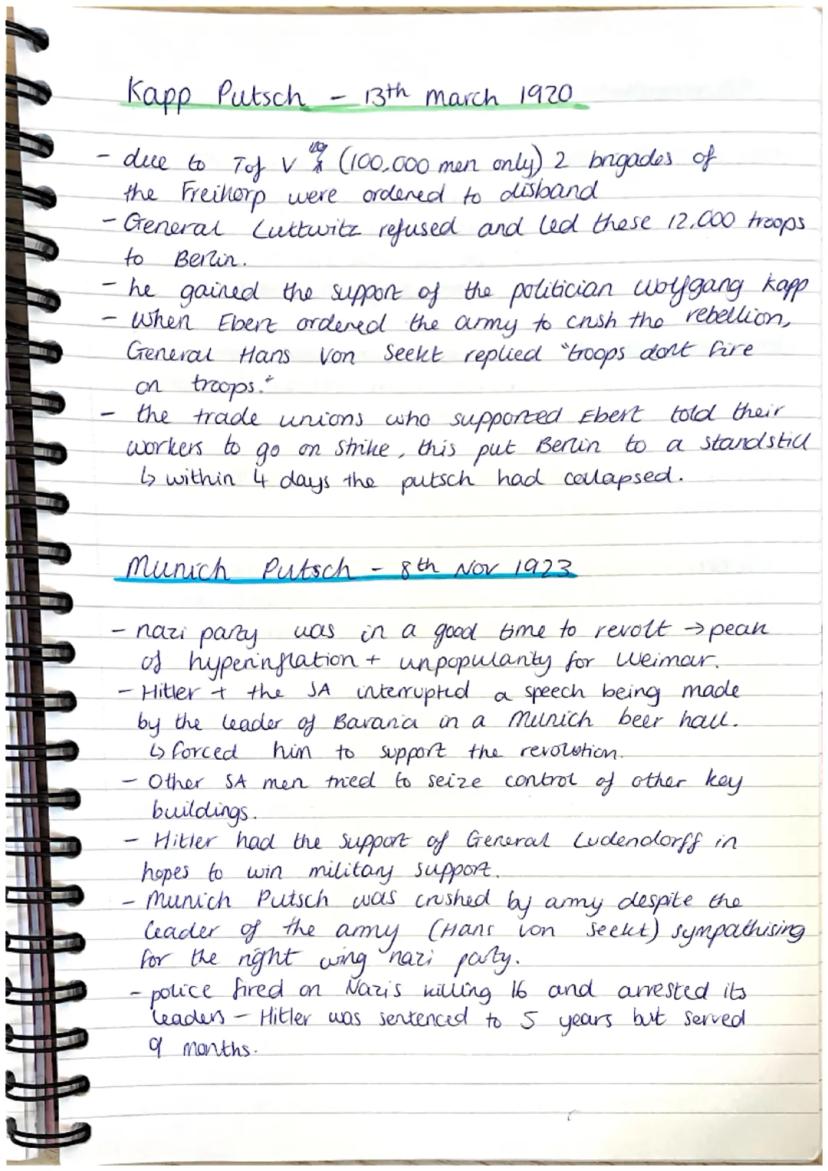 Kapp Putsch - 13th march 1920
- due to T of V (100,000 men only) 2 brigades of
the Freikorp were ordered to disband
- General Luttwitz refused and led these 12,000 troops
to Berlin.
- he gained the support of the politician Wolfgang Kapp
- When Ebert ordered the army to crush the rebellion,
General Hans Von Seekt replied "troops don't fire
on troops."
- the trade unions who supported Ebert told their
workers to go on strike, this put Berlin to a standstill
↳ within 4 days the putsch had collapsed.
Munich Putsch - 8th Nov 1923
- nazi party was in a good time to revolt → peak
of hyperinflation + unpopularity for Weimar.
- Hitler + the SA interrupted a speech being made
by the leader of Bavaria in a Munich beer hall.
↳ forced him to support the revolution.
- Other SA men tried to seize control of other key
buildings.
- Hitler had the support of General Ludendorff in
hopes to win military support.
- Munich Putsch was crushed by army despite the
leader of the army (Hans von Seekt) sympathising
for the right wing nazi party.
- police fired on Nazis killing 16 and arrested its
leaders - Hitler was sentenced to 5 years but served
9 months.